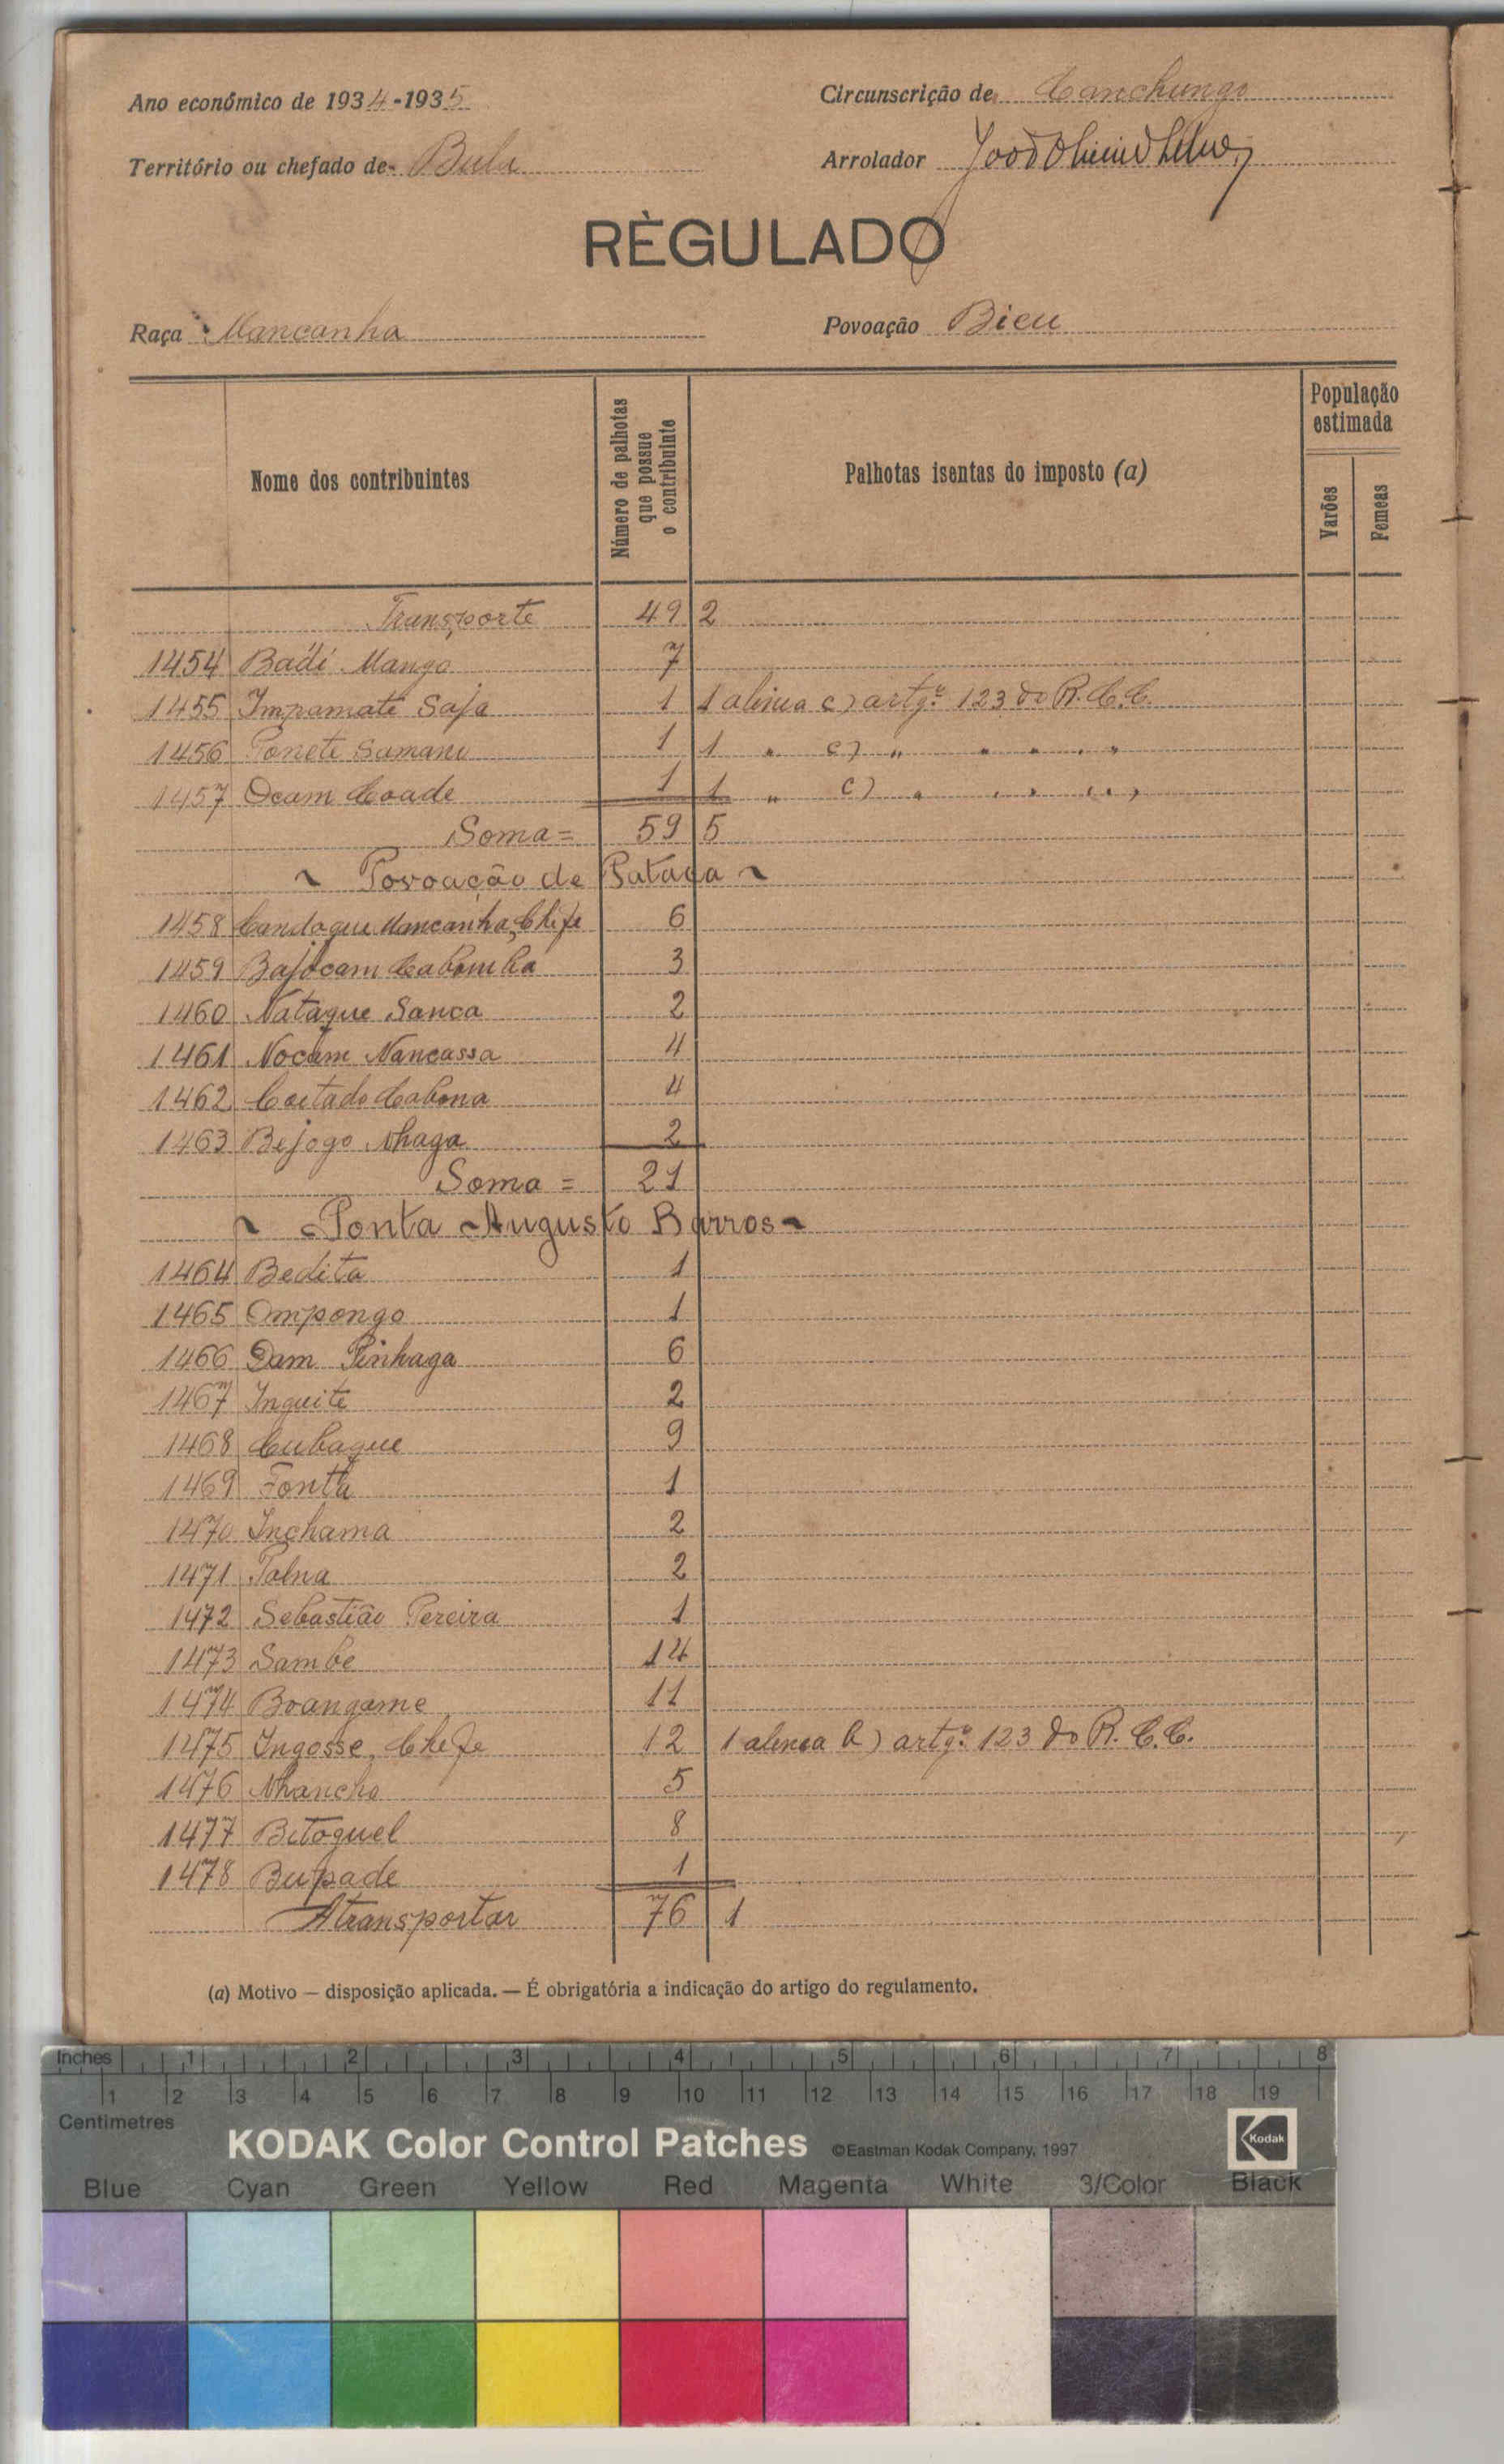 Ano económico de 1934-1935
Circunscrição de Canchungo
Território ou chefado de Bula
Arrolador
RÈGULADO
Raça Mancanha
Povoação Bieu
Nome dos contribuintes
Número de palhotas que possue o contribuinte
Palhotas isentas do imposto (a)
População estimada
Varões
Femeas
Transporte 49 2
1454 Badi Mango 7
1455 Impamate Saja 1 1 alinea c) artgº 123 do R. C. C.
1456 Ponete Samani 1 1 " c) " " " " "
1457 Ocam Coade 1 1 " c) " " " " "
Soma = 59 5
~ Povoação de Patada ~
1458 Candaque Mancanha, Chefe 6
1459 Bajocam Cabomba 3
1460 Nataque Sanca 2
1461 Nocam Nancassa 4
1462 Coitado Cabona 4
1463 Bejogo Nhaga 2
Soma = 21
~ Ponta Augusto Barros ~
1464 Bedita 1
1465 Ompongo 1
1466 Dam Pinhaga 6
1467 Inquite 2
1468 Cubaque 9
1469 Fonta 1
1470 Inchama 2
1471 Palna 2
1472 Sebastião Pereira 1
1473 Sambe 14
1474 Boangame 11
1475 Ingosse, Chefe 12 1 alinea b) artgº 123 do R. C. C.
1476 Nhancho 5
1477 Bitoquel 8
1478 Bupade 1
A transportar 76 1
(a) Motivo — disposição aplicada. — É obrigatória a indicação do artigo do regulamento.
Inches 1 2 3 4 5 6 7 8
1 2 3 4 5 6 7 8 9 10 11 12 13 14 15 16 17 18 19
Centimetres
KODAK Color Control Patches ©Eastman Kodak Company, 1997 Kodak
Blue Cyan Green Yellow Red Magenta White 3/Color Black